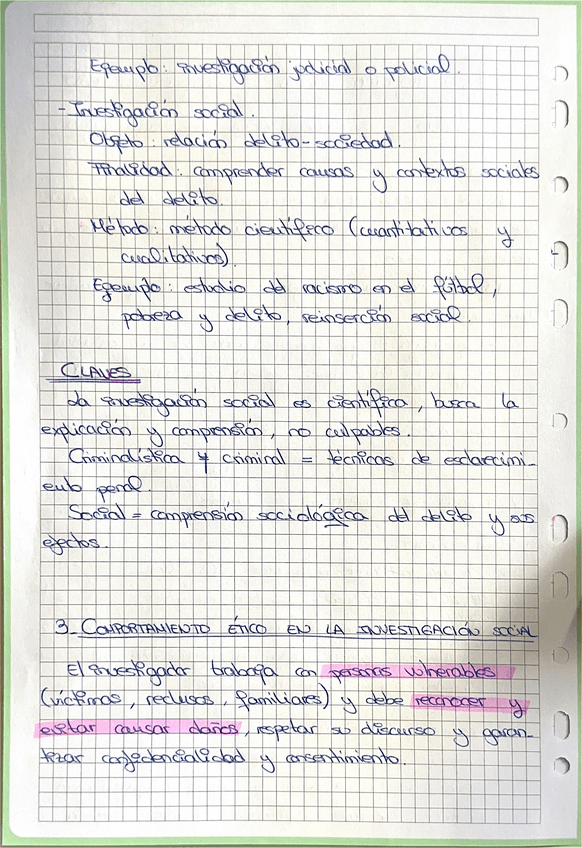 Ejemplo: investigación judicial o policial.
- Investigación social.
Objeto: relación delito-sociedad.
Finalidad: comprender causas y contextos sociales
del delito.
Método: método científico (cuantitativos y
cualitativos).
Ejemplo: estudio del racismo en el fútbol,
pobreza y delito, reinserción social.
CLAVES
La investigación social es científica, busca la
explicación y comprensión, no culpables.
Criminalística y criminal = técnicas de esclarecimi-
ento penal.
Social = comprensión sociológica del delito y sus
efectos.
3- COMPORTAMIENTO ÉTICO EN LA INVESTIGACIÓN SOCIAL
El investigador trabaja con personas vulnerables
(víctimas, reclusos, familiares) y debe reconocer y
evitar causar daños, respetar su discurso y garan-
tizar confidencialidad y consentimiento.